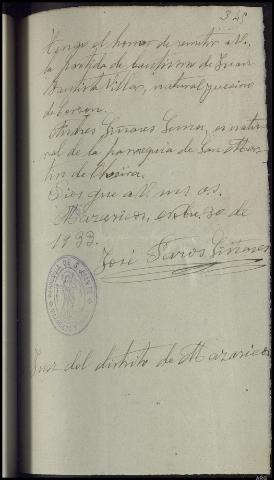 325
Tengo el honor de remitir a V.
la partida de bautismo de Juan
Bautista Villar, natural y vecino
de Corzon.
Andres Liñares Lema, es natu-
ral de la parroquia de San Mar-
tin de
Dios que a V. ms as.
Mazaricos, enero, 30 de
1933.
José Liñares
Juez del distrito de Mazaricos